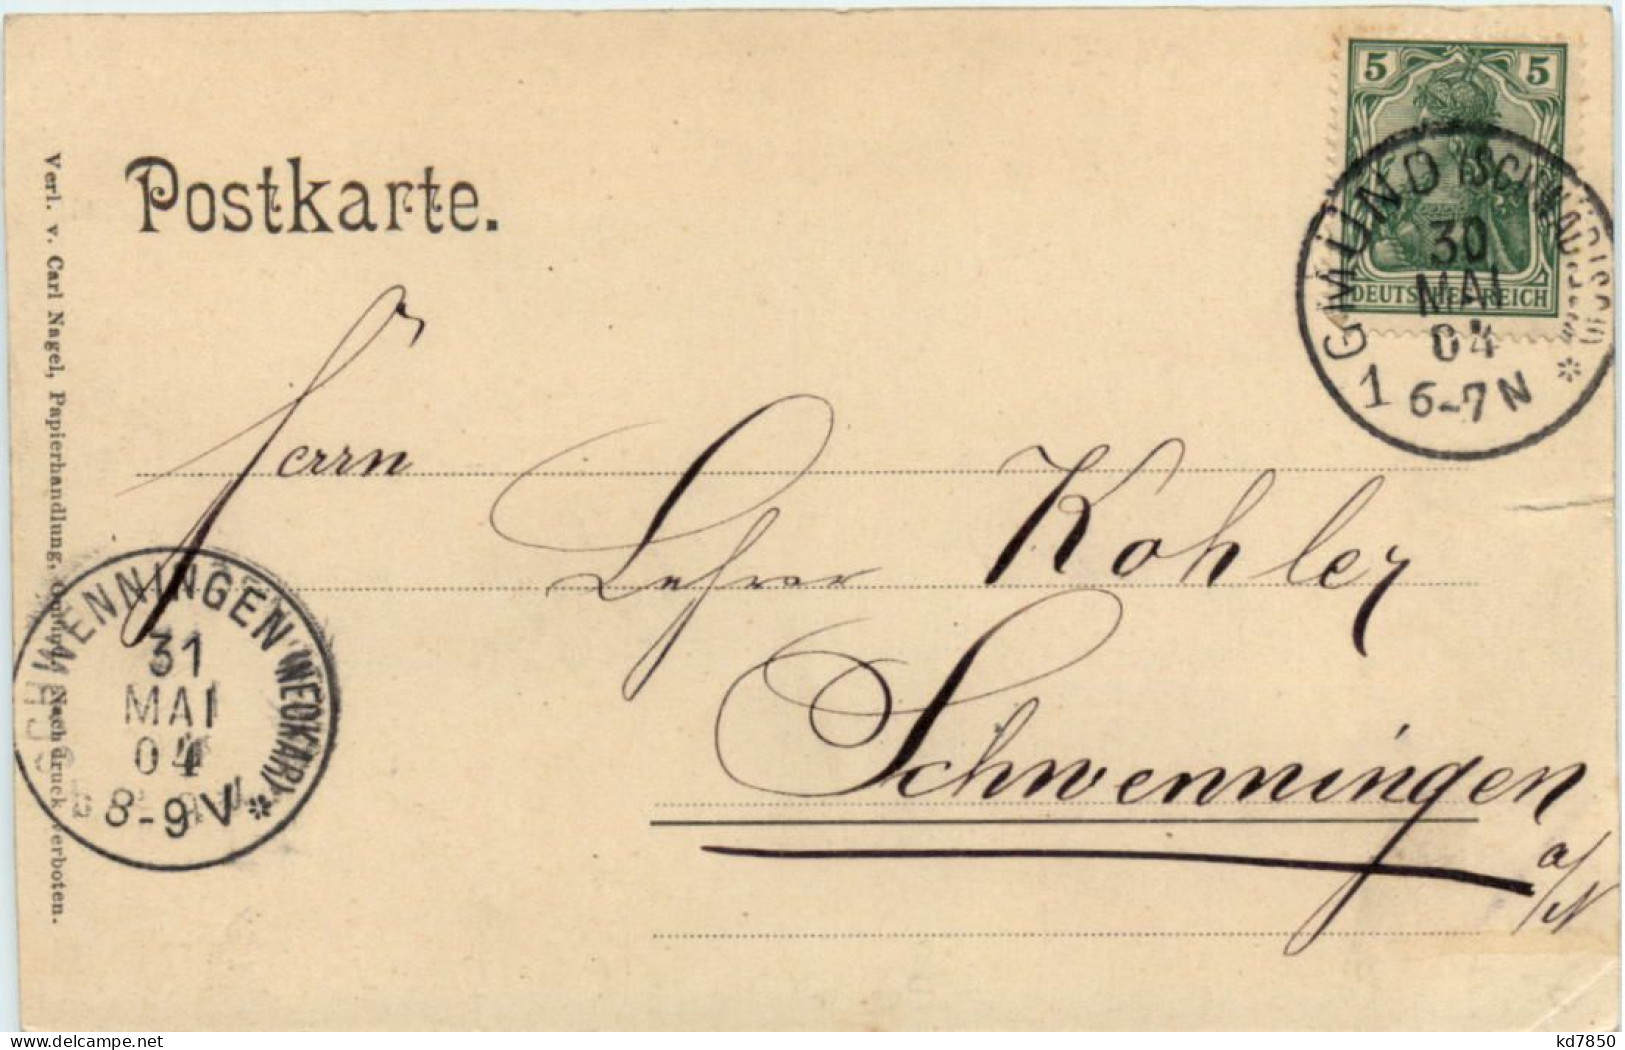 5 5
DEUTSCHES REICH
GMÜND (SCHWÄBISCH)
30
MAI
04
1 6-7 N *
Postkarte.
Herrn
Lehrer Kohler
Schwenningen
a/N
SCHWENNINGEN (NECKAR)
31
MAI
04
8-9 V *
Verl. v. Carl Nagel, Papierhandlung, Gmünd. Nachdruck verboten.
www.delcampe.net
kd7850